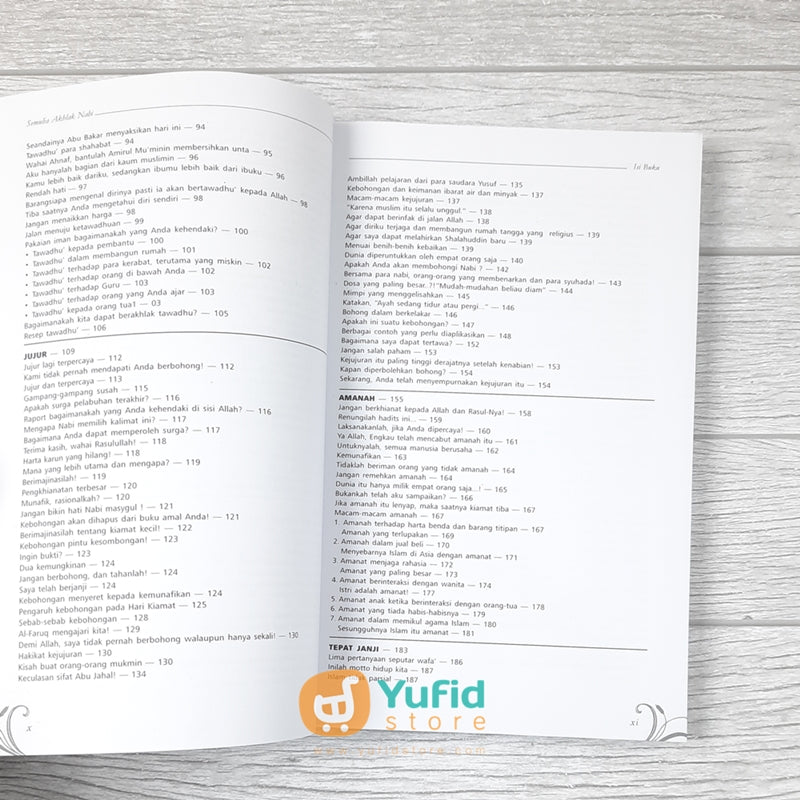 Semulia Akhlak Nabi
Seandainya Abu Bakar menyaksikan hari ini — 94
Tawadhu' para shahabat — 94
Wahai Ahnaf, bantulah Amirul Mu'minin membersihkan unta — 95
Aku hanyalah bagian dari kaum muslimin — 96
Kamu lebih baik dariku, sedangkan ibumu lebih baik dari ibuku — 96
Rendah hati — 97
Barangsiapa mengenal dirinya pasti ia akan bertawadhu' kepada Allah — 98
Tiba saatnya Anda mengetahui diri sendiri — 98
Jangan menaikkan harga — 98
Jalan menuju ketawadhuan — 99
Pakaian iman bagaimanakah yang Anda kehendaki? — 100
• Tawadhu' kepada pembantu — 100
• Tawadhu' dalam membangun rumah — 101
• Tawadhu' terhadap para kerabat, terutama yang miskin — 102
• Tawadhu' terhadap orang di bawah Anda — 102
• Tawadhu' terhadap Guru — 103
• Tawadhu' terhadap orang yang Anda ajar — 103
• Tawadhu' kepada orang tua1 — 03
Bagaimanakah kita dapat berakhlak tawadhu? — 105
Resep tawadhu' — 106
JUJUR — 109
Jujur lagi terpercaya — 112
Kami tidak pernah mendapati Anda berbohong! — 112
Jujur dan terpercaya — 113
Gampang-gampang susah — 115
Apakah surga pelabuhan terakhir? — 116
Raport bagaimanakah yang Anda kehendaki di sisi Allah? — 116
Mengapa Nabi memilih kalimat ini? — 117
Bagaimana Anda dapat memperoleh surga? — 117
Terima kasih, wahai Rasulullah! — 118
Harta karun yang hilang! — 118
Mana yang lebih utama dan mengapa? — 119
Berimajinasilah! — 119
Pengkhianatan terbesar — 120
Munafik, rasionalkah? — 120
Jangan bikin hati Nabi masygul ! — 121
Kebohongan akan dihapus dari buku amal Anda! — 121
Berimajinasilah tentang kiamat kecil! — 122
Kebohongan pintu kesombongan! — 123
Ingin bukti? — 123
Dua kemungkinan — 124
Jangan berbohong, dan tahanlah! — 124
Saya telah berjanji — 124
Kebohongan menyeret kepada kemunafikan — 124
Pengaruh kebohongan pada Hari Kiamat — 125
Sebab-sebab kebohongan — 128
Al-Faruq mengajari kita! — 129
Demi Allah, saya tidak pernah berbohong walaupun hanya sekali! — 130
Hakikat kejujuran — 130
Kisah buat orang-orang mukmin — 130
Keculasan sifat Abu Jahal! — 134
x
Isi Buku
Ambillah pelajaran dari para saudara Yusuf — 135
Kebohongan dan keimanan ibarat air dan minyak — 137
Macam-macam kejujuran — 137
"Karena muslim itu selalu unggul." — 138
Agar dapat berinfak di jalan Allah — 138
Agar diriku terjaga dan membangun rumah tangga yang religius — 139
Agar saya dapat melahirkan Shalahuddin baru — 139
Menuai benih-benih kebaikan — 139
Dunia diperuntukkan oleh empat orang saja — 140
Apakah Anda akan membohongi Nabi ? — 142
Bersama para nabi, orang-orang yang membenarkan dan para syuhada! — 143
Dosa yang paling besar..?!"Mudah-mudahan beliau diam" — 144
Mimpi yang menggelisahkan — 145
Katakan, "Ayah sedang tidur atau pergi..." — 146
Bohong dalam berkelakar — 146
Apakah ini suatu kebohongan? — 147
Berbagai contoh yang perlu diaplikasikan — 148
Bagaimana saya dapat tertawa? — 152
Jangan salah paham — 153
Kejujuran itu paling tinggi derajatnya setelah kenabian! — 153
Kapan diperbolehkan bohong? — 154
Sekarang, Anda telah menyempurnakan kejujuran itu — 154
AMANAH — 155
Jangan berkhianat kepada Allah dan Rasul-Nya! — 158
Renungilah hadits ini... — 159
Laksanakanlah, jika Anda dipercaya! — 160
Ya Allah, Engkau telah mencabut amanah itu — 161
Untuknyalah, semua manusia berusaha — 162
Kemunafikan — 163
Tidaklah beriman orang yang tidak amanah — 164
Jangan remehkan amanah — 164
Dunia itu hanya milik empat orang saja...! — 165
Bukankah telah aku sampaikan? — 166
Jika amanah itu lenyap, maka saatnya kiamat tiba — 167
Macam-macam amanah — 167
1. Amanah terhadap harta benda dan barang titipan — 167
Amanah yang terlupakan — 169
2. Amanah dalam jual beli — 170
Menyebarnya Islam di Asia dengan amanat — 171
3. Amanat menjaga rahasia — 172
Amanat yang paling besar — 173
4. Amanat berinteraksi dengan wanita — 174
Istri adalah amanat! — 177
5. Amanat anak ketika berinteraksi dengan orang-tua — 178
6. Amanat yang tiada habis-habisnya — 179
7. Amanat dalam memikul agama Islam — 180
Sesungguhnya Islam itu amanat — 181
TEPAT JANJI — 183
Lima pertanyaan seputar wafa' — 186
Inilah motto hidup kita — 187
Islam tidak parsial — 187
xi
Yufid
store
www.yufidstore.com